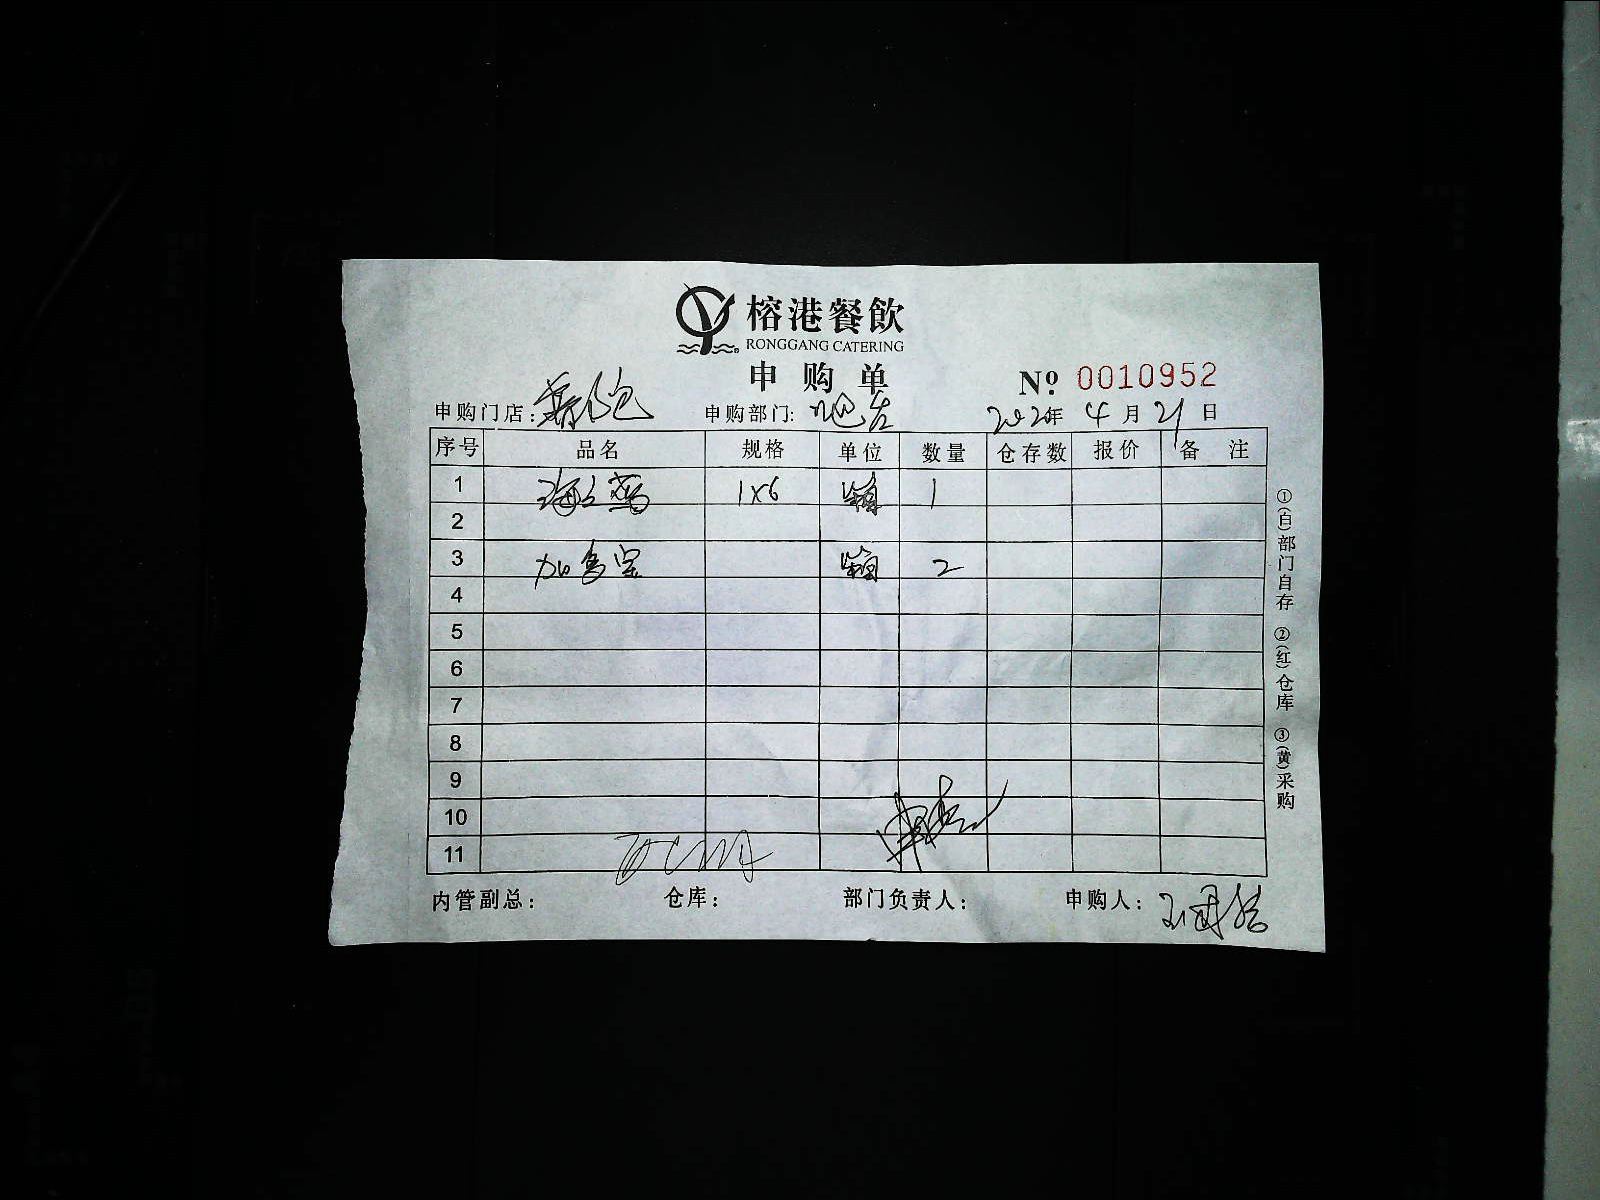 榕港餐飲
RONGGANG CATERING
申购单
№ 0010952
申购门店: 申购部门: 吧台 2020年 4月 21日
序号 品名 规格 单位 数量 仓存数 报价 备注
1 1X6 箱 1
2
3 加多宝 箱 2
4
5
6
7
8
9
10
11
内管副总: 仓库: 部门负责人: 申购人:
①(白)部门自存 ②(红)仓库 ③(黄)采购